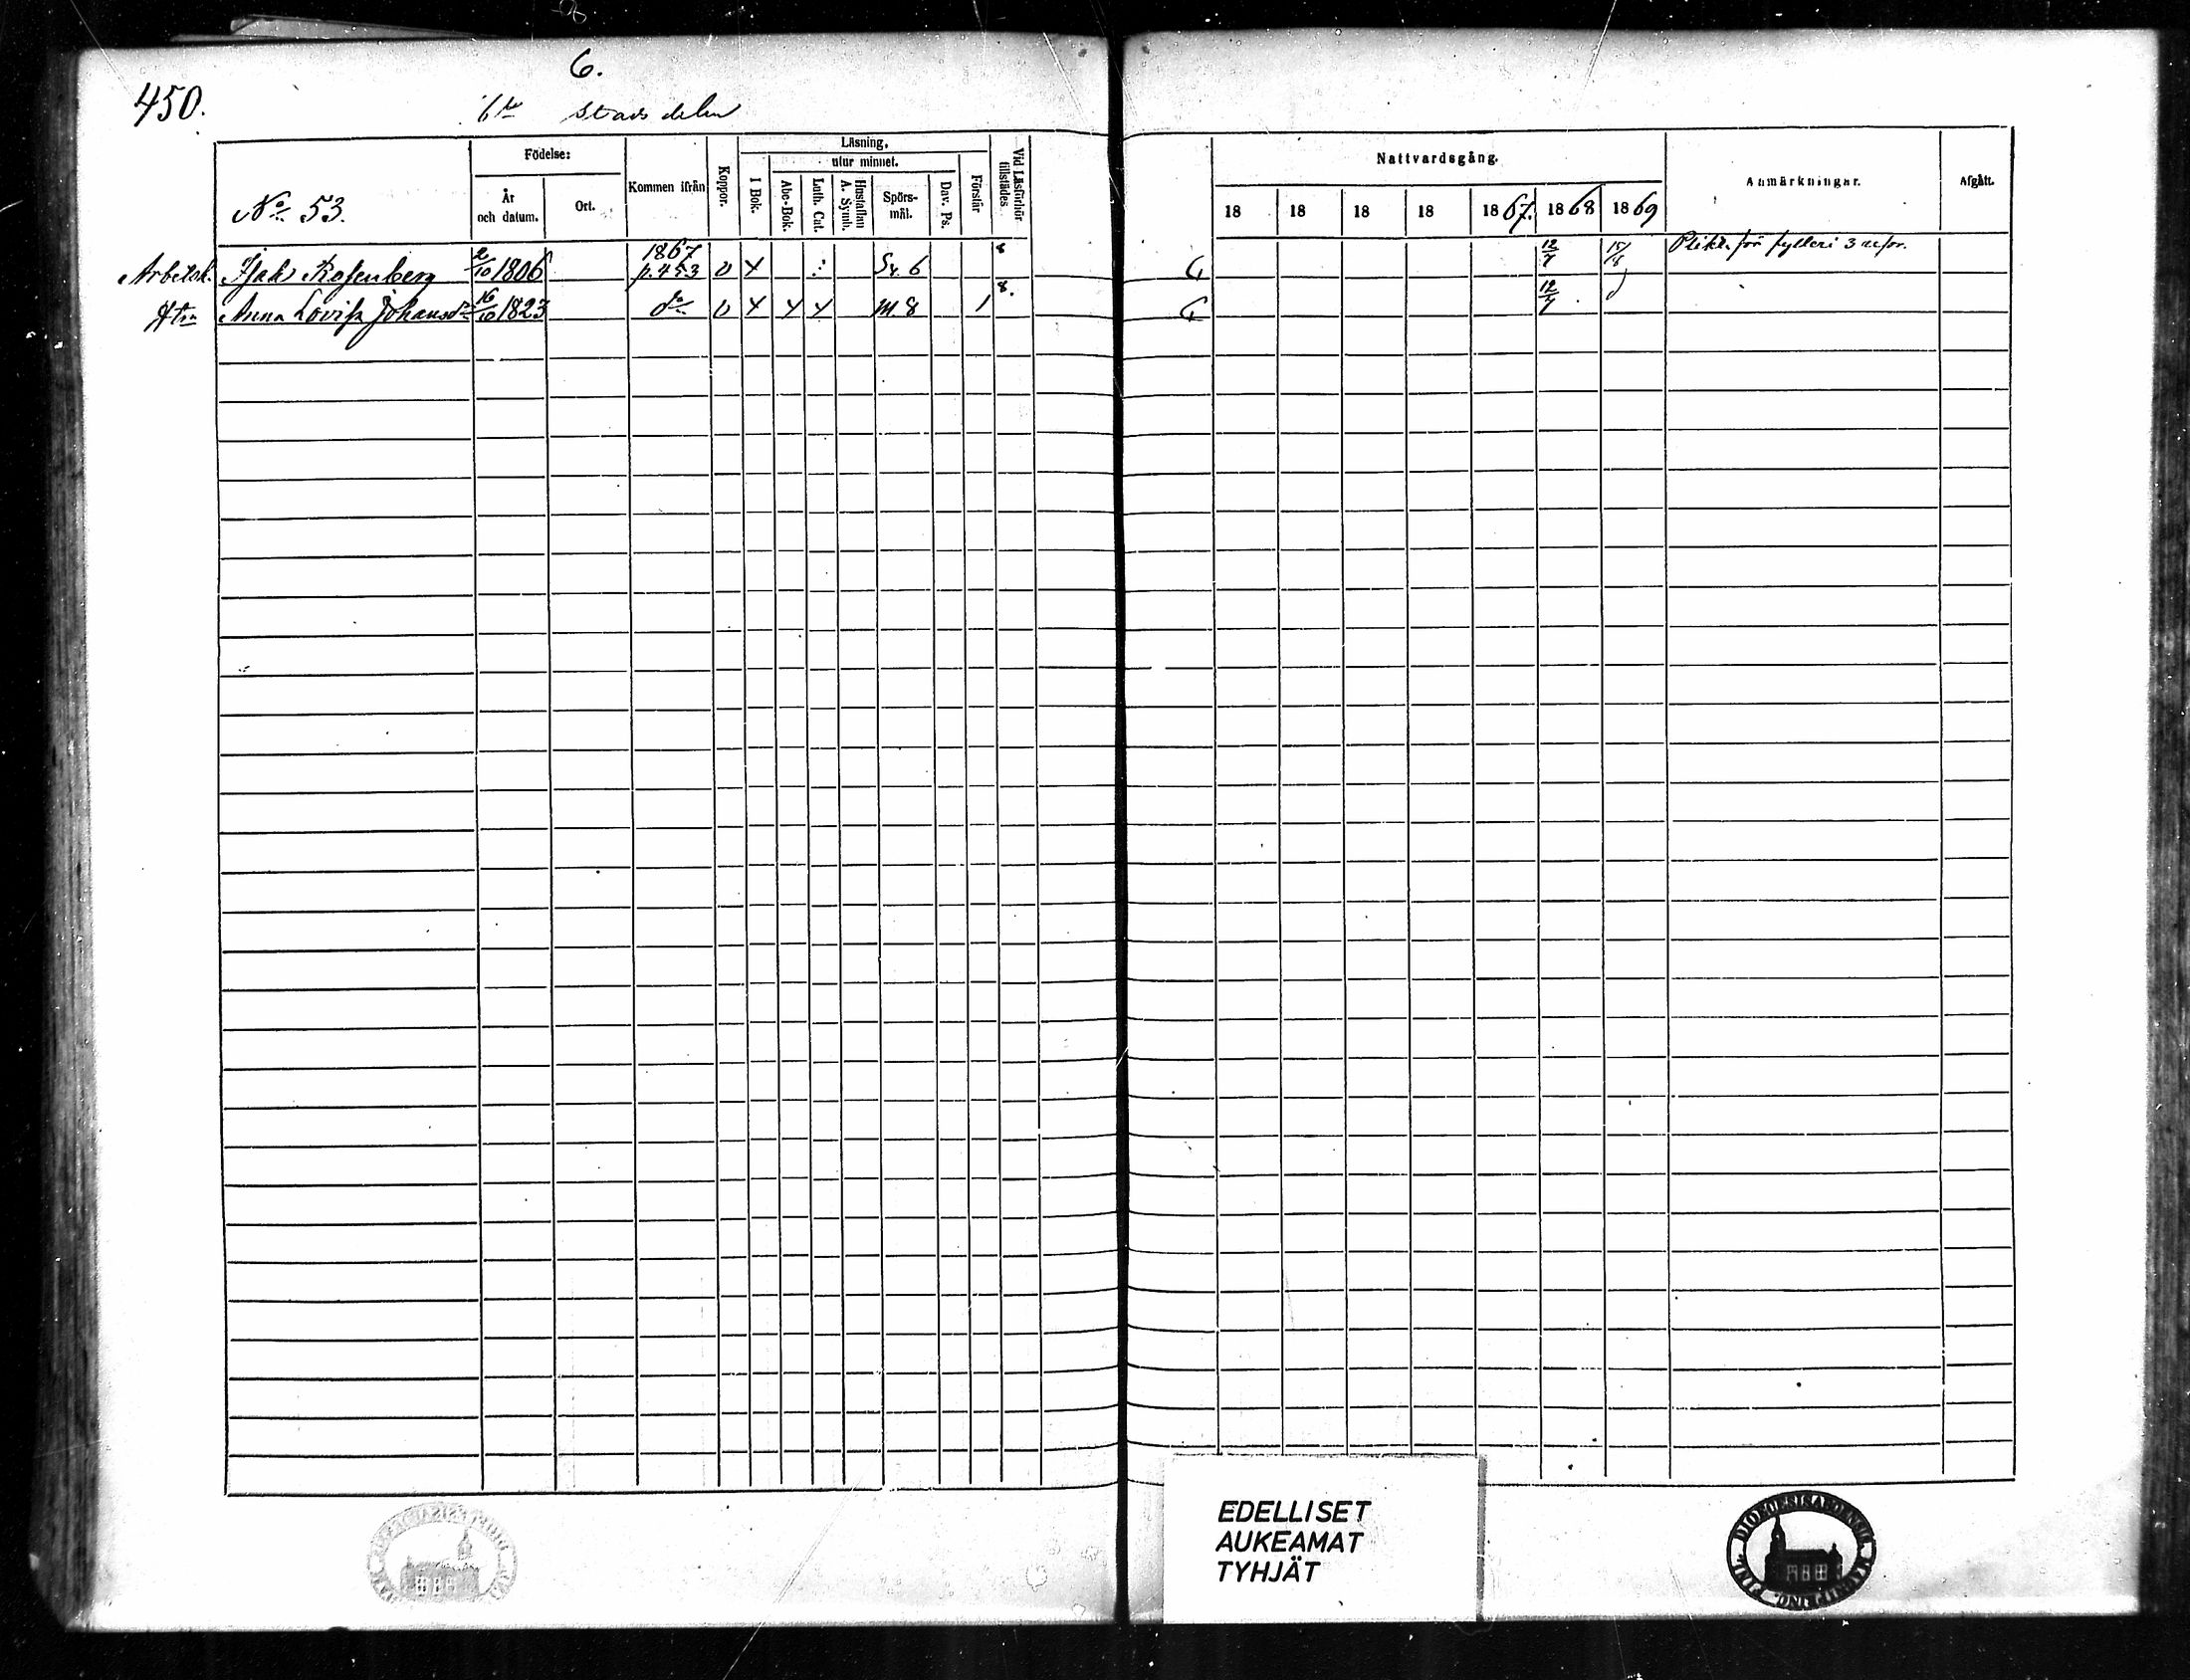 6.
450.
6te Stadsdelen
No 53.
Födelse:
År och datum.
Ort.
Kommen ifrån
Koppor.
Läsning,
I Bok.
utur minnet.
Abc-Bok.
Luth. Cat.
Hustaflan A. Symb.
Spörsmål.
Dav. Ps.
Förstår
Vid Läsförhör tillstädes.
Nattvardsgång.
18 18 18 18 1867. 1868 1869
Anmärkningar.
Afgått.
Arbetsk. Isak Rosenberg 2/10 1806 1867 p. 453 v x Sv. 6 8 G 12/7 15/8 Plikt. för fylleri 3 resor.
Hn Anna Lovisa Johansdr 16/10 1823 do v x x x m 8 1 8. G 12/7
EDELLISET
AUKEAMAT
TYHJÄT